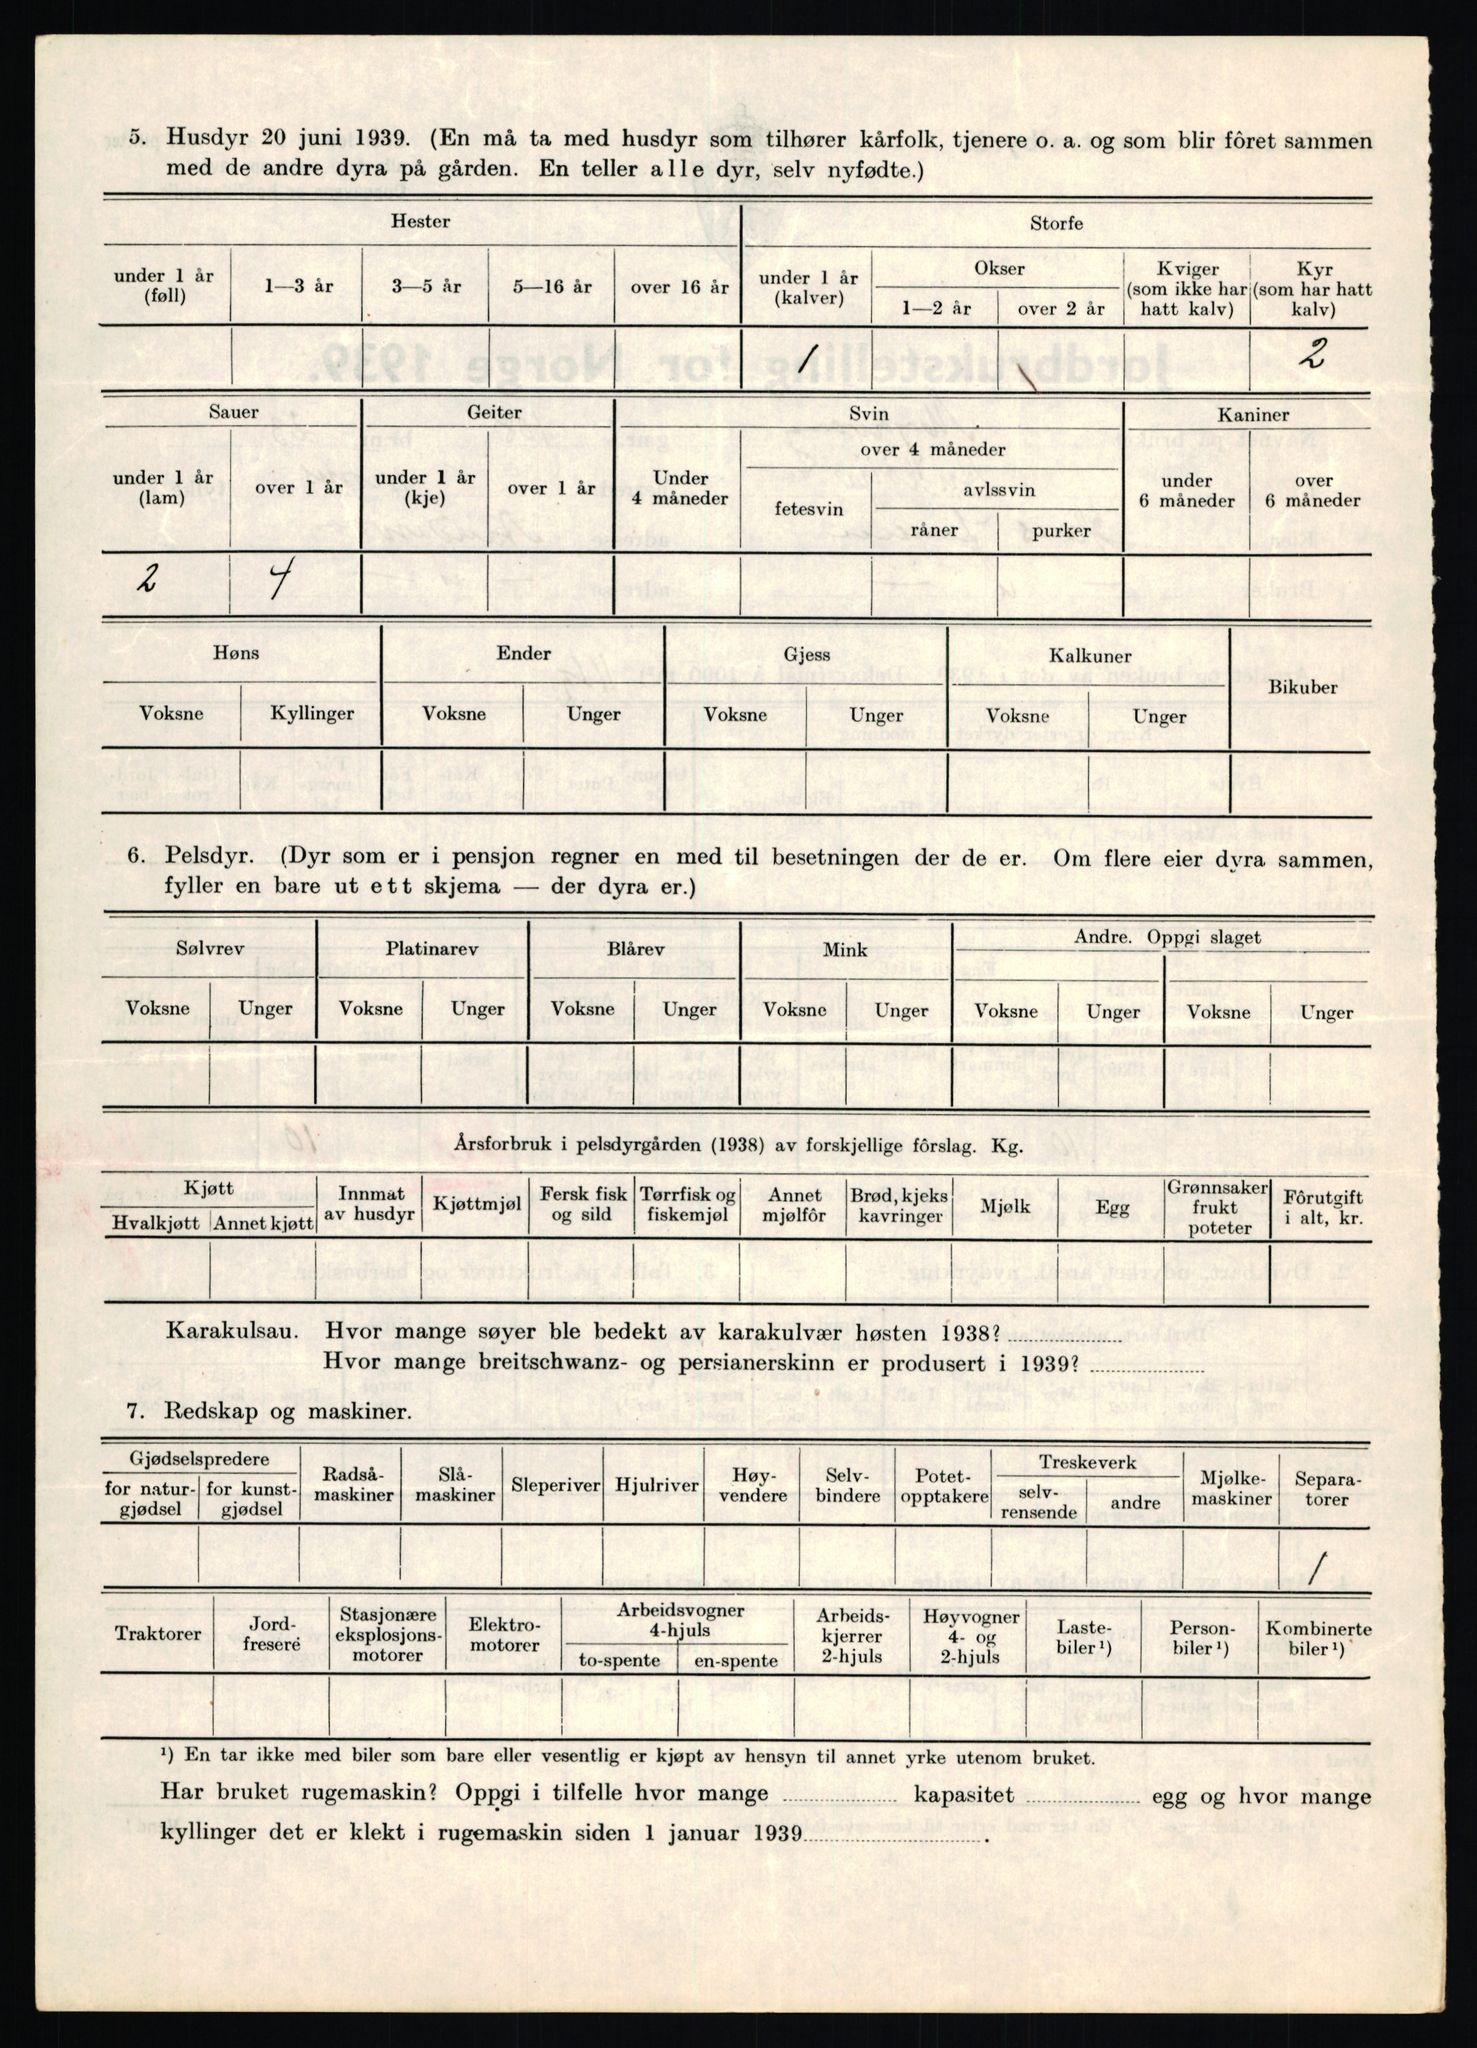 5. Husdyr 20 juni 1939. (En må ta med husdyr som tilhører kårfolk, tjenere o. a. og som blir fôret sammen
med de andre dyra på gården. En teller alle dyr, selv nyfødte.)
Hester Storfe
under 1 år (føll) 1—3 år 3—5 år 5—16 år over 16 år under 1 år (kalver) Okser 1—2 år over 2 år Kviger (som ikke har hatt kalv) Kyr (som har hatt kalv)
1 2
Sauer Geiter Svin Kaniner
under 1 år (lam) over 1 år under 1 år (kje) over 1 år Under 4 måneder over 4 måneder fetesvin avlssvin råner purker under 6 måneder over 6 måneder
2 4
Høns Ender Gjess Kalkuner Bikuber
Voksne Kyllinger Voksne Unger Voksne Unger Voksne Unger
6. Pelsdyr. (Dyr som er i pensjon regner en med til besetningen der de er. Om flere eier dyra sammen,
fyller en bare ut ett skjema — der dyra er.)
Sølvrev Platinarev Blårev Mink Andre. Oppgi slaget
Voksne Unger Voksne Unger Voksne Unger Voksne Unger Voksne Unger Voksne Unger
Årsforbruk i pelsdyrgården (1938) av forskjellige fôrslag. Kg.
Kjøtt Hvalkjøtt Annet kjøtt Innmat av husdyr Kjøttmjøl Fersk fisk og sild Tørrfisk og fiskemjøl Annet mjølfôr Brød, kjeks kavringer Mjølk Egg Grønnsaker frukt poteter Fôrutgift i alt, kr.
Karakulsau. Hvor mange søyer ble bedekt av karakulvær høsten 1938?
Hvor mange breitschwanz- og persianerskinn er produsert i 1939?
7. Redskap og maskiner.
Gjødselspredere for natur-gjødsel for kunst-gjødsel Radså-maskiner Slå-maskiner Sleperiver Hjulriver Høy-vendere Selv-bindere Potet-opptakere Treskeverk selv-rensende andre Mjølke-maskiner Separa-torer
1
Traktorer Jord-fresere Stasjonære eksplosjons-motorer Elektro-motorer Arbeidsvogner 4-hjuls to-spente en-spente Arbeids-kjerrer 2-hjuls Høyvogner 4- og 2-hjuls Laste-biler ¹) Person-biler ¹) Kombinerte biler ¹)
¹) En tar ikke med biler som bare eller vesentlig er kjøpt av hensyn til annet yrke utenom bruket.
Har bruket rugemaskin? Oppgi i tilfelle hvor mange kapasitet egg og hvor mange
kyllinger det er klekt i rugemaskin siden 1 januar 1939 .